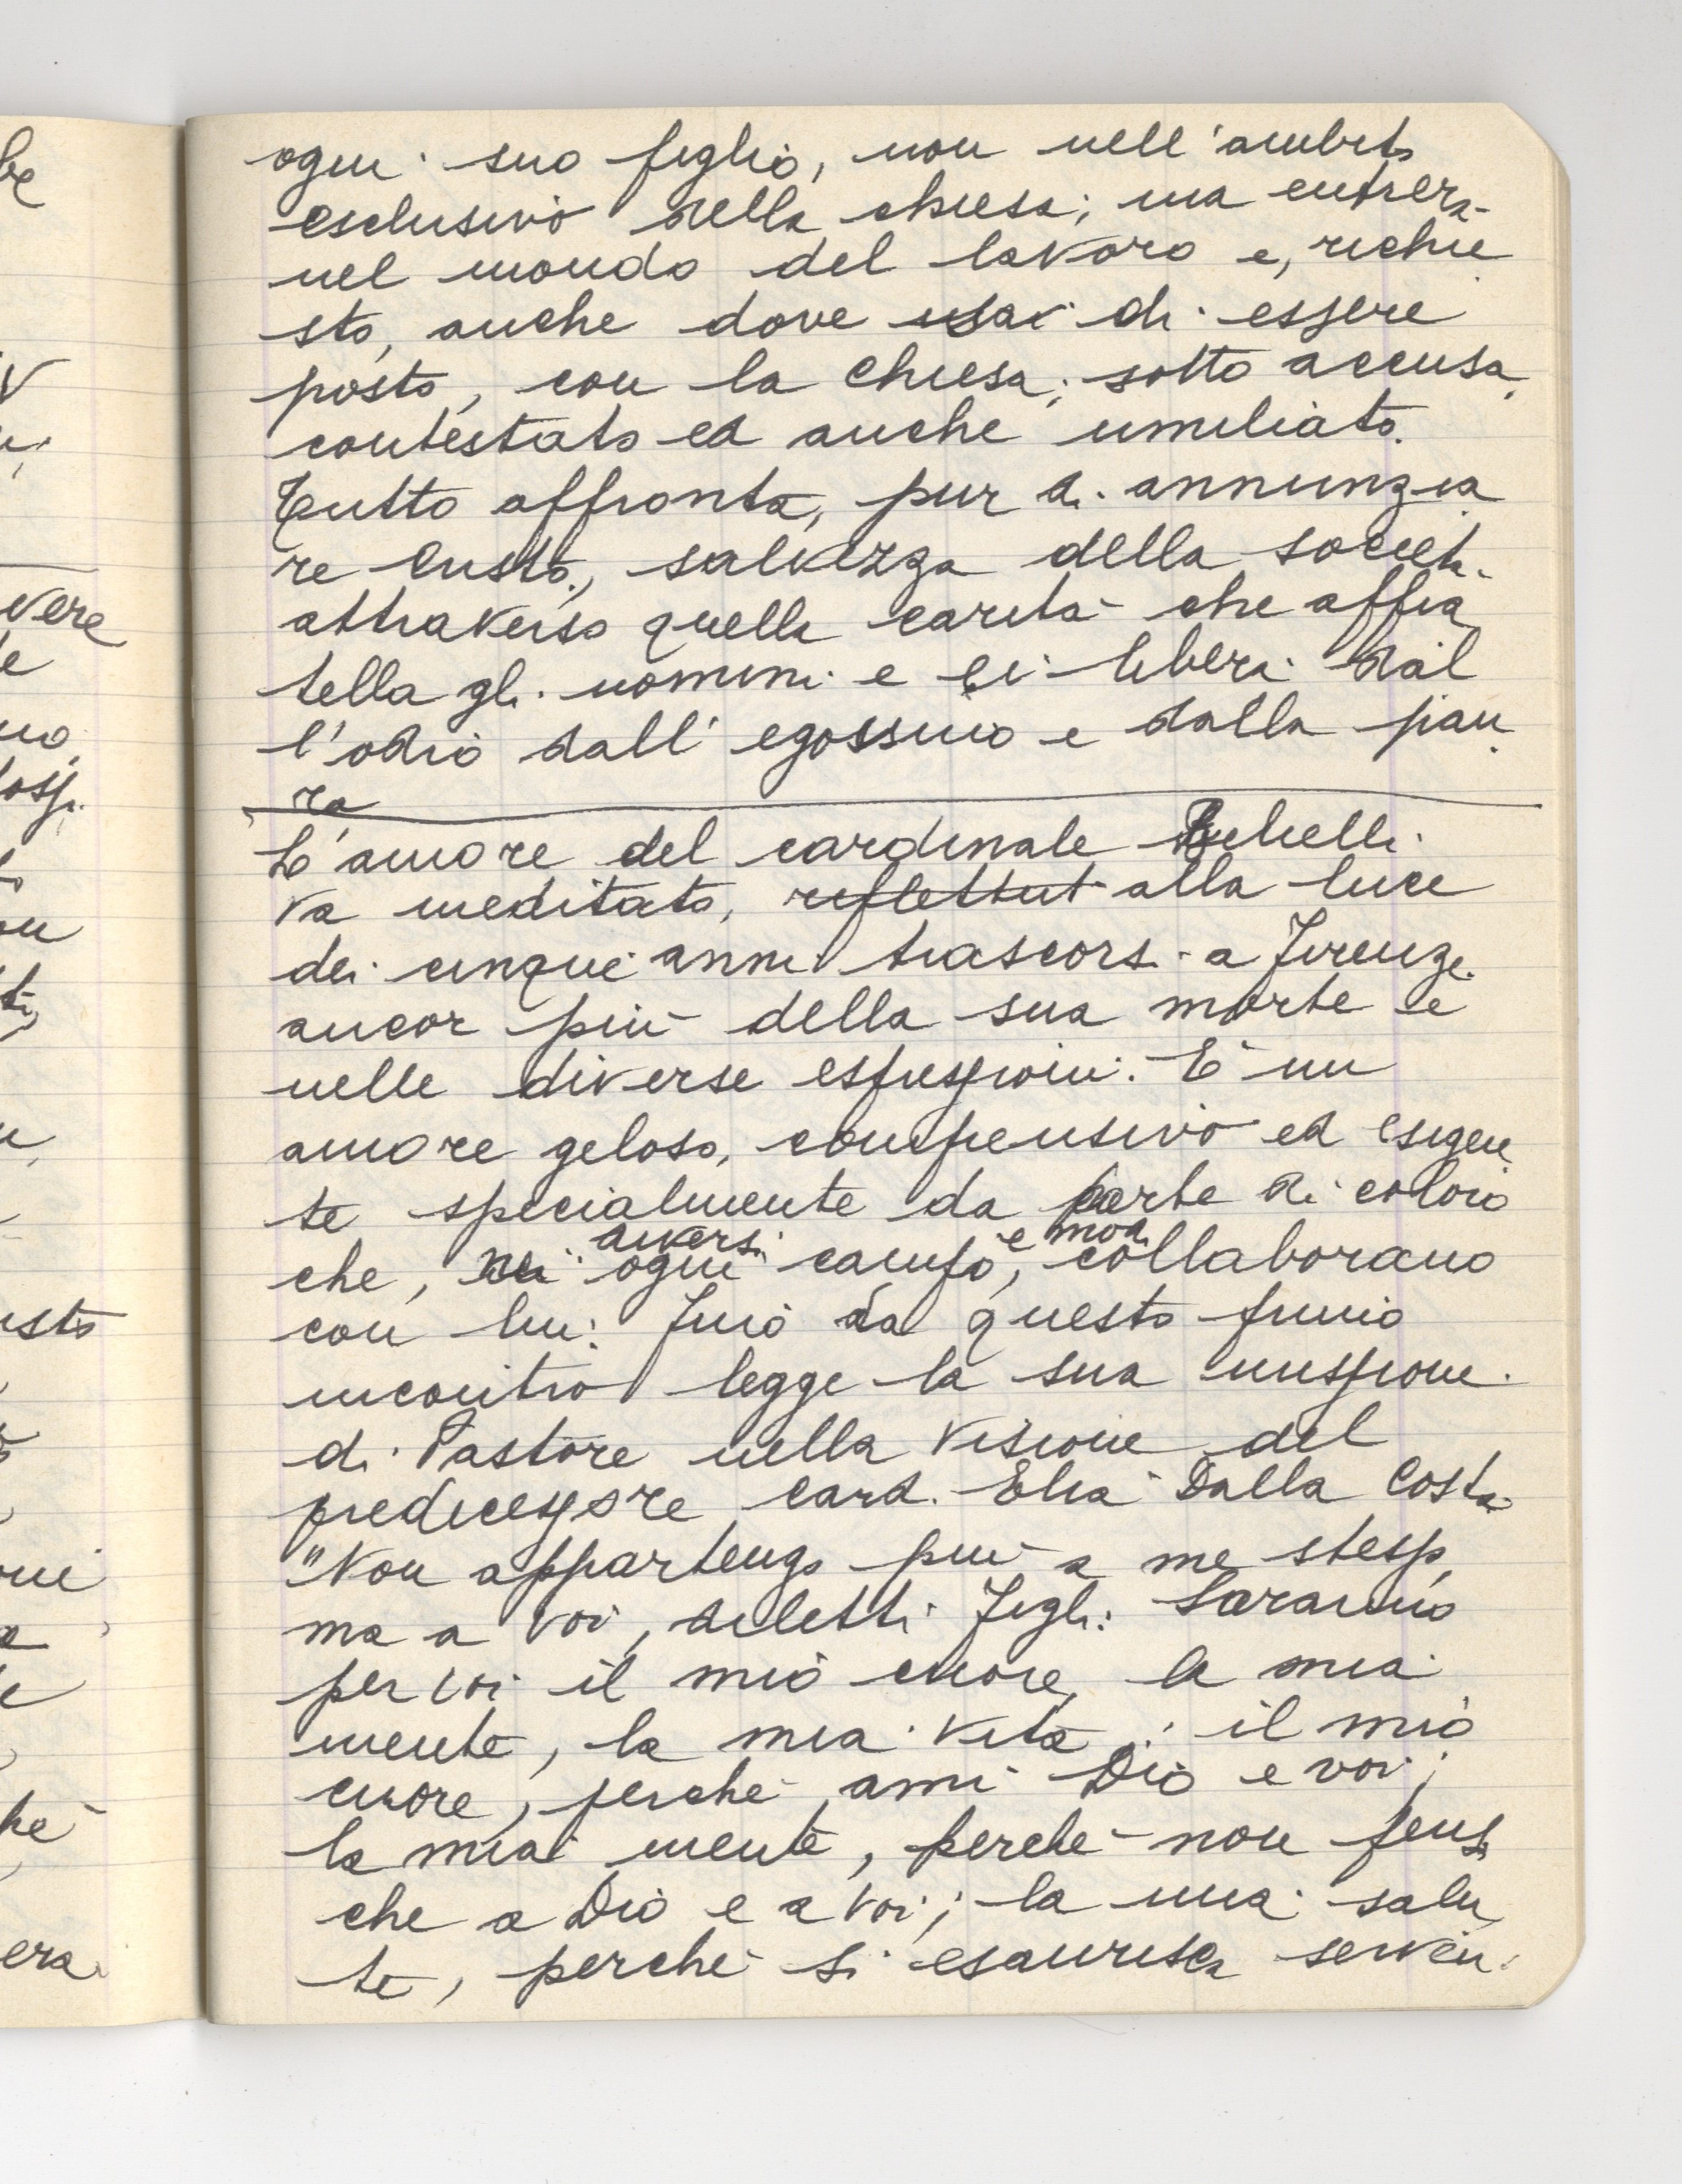 ogni suo figlio, non nell'ambito
esclusivo della chiesa; ma entrerà
nel mondo del lavoro e, richie
sto, anche dove di essere
posto, con la Chiesa, sotto accusa,
contestato ed anche umiliato.
Tutto affronta, pur di annunzia
re Cristo, salvezza della società
attraverso quella carità che affra
tella gli uomini e ci liberi dal
l'odio dall'egoismo e dalla pau
ra
L'amore del cardinale Benelli
va meditato, riflettut alla luce
dei cinque anni trascorsi a Firenze
ancor più della sua morte e
nelle diverse espressioni. È un
amore geloso, comprensivo ed esigen
te specialmente da parte di coloro
che, in diversi ogni campo, e modi collaborano
con lui. Fino da questo primo
incontro legge la sua missione
di Pastore nella visione del
predecessore card. Elia Dalla Costa
"Non appartengo più a me stesso,
ma a voi, diletti Figli. Saranno
per voi il mio cuore, la mia
mente, la mia vita: il mio
cuore, perché ami Dio e voi;
la mia mente, perché non pensi
che a Dio e a voi; la mia salu
te, perché si esaurisca serven